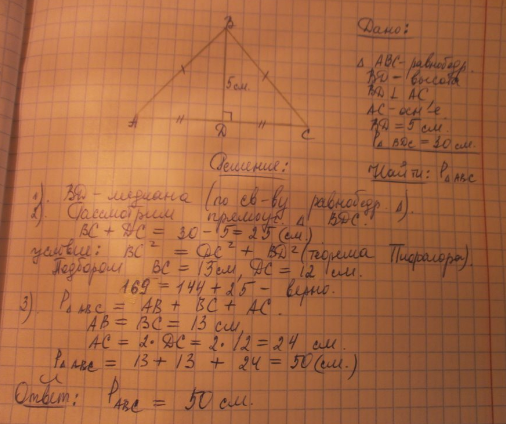 Дано:
Δ ABC - равнобедр.
BD - высота
BD ⊥ AC
AC - осн-е
BD = 5 см.
P Δ BDC = 30 см.
Найти: P Δ ABC
B
5 см.
A
D
C
Решение:
1). BD - медиана (по св-ву равнобедр. Δ).
2). Рассмотрим прямоуг. Δ BDC:
BC + DC = 30 - 5 = 25 (см.)
условие: BC² = DC² + BD² (теорема Пифагора).
Подбором BC = 13 см, DC = 12 см.
169 = 144 + 25 - верно.
3). P Δ ABC = AB + BC + AC.
AB = BC = 13 см,
AC = 2 · DC = 2 · 12 = 24 см.
P Δ ABC = 13 + 13 + 24 = 50 (см.)
Ответ: P ABC = 50 см.